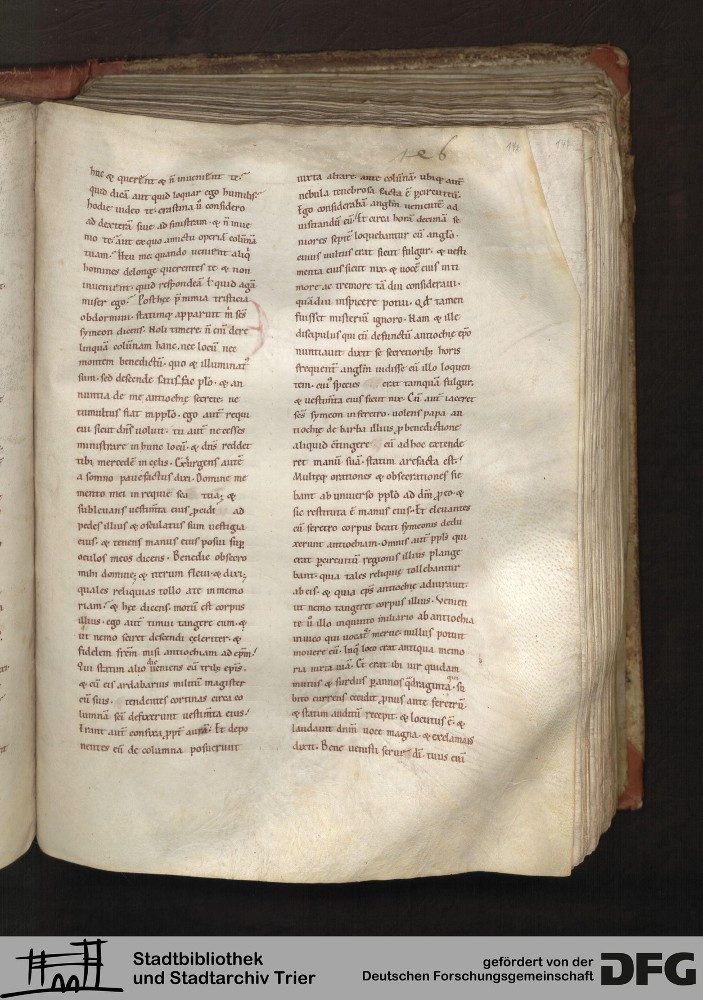 126
huc & querent & n̄ invenient te.
quid dicā aut quid loquar ego humilis.
hodie video te. crastina ū considero
ad dexterā sive ad sinistram. & ñ inve
homines delonge querentes te. & non
invenient. quid respondeā ł quid agā
miser ego. Posthęc p̄ nimia tristicia
obdormivi. statimq; apparuit m̄ scs̄
symeon dicens. Noli timere. n̄ eni dere
linquā columnam hanc. nec locū nec
montem benedictū. quo & illuminat'
sum. sed descende satisfac plo. & an
nuntia de me antiochię secrete. ne
tumultus fiat in pplo. ego autē requi
evi sicut dn̄s voluit. tu aut ne cesses
ministrare in hunc locū. & dn̄s reddet
tibi mercedē in celis. Exurgens autē
a somno pavefactus dixi. Domine me
mento mei in requie sc̄a tua. &
sublevans vestimta eius. pcidi ad
pedes illius & osculatus sum vestigia
eius. & tenens manus eius posui sup
oculos meos dicens. Benedic obsecro
mihi domine. & iterum flevi. & dixi.
quales reliquias tollo a te in memo
riam. & hęc dicens. motū est corpus
illius. ego autē timui tangere eum. &
ut nemo sciret descendi celeriter. &
fidelem frēm misi antiochiam ad epm̄.
Qui statim alio die veniens cū trib; ep̄is.
& cū eis ardabarius militū magister
cū suis. tendentes cortinas circa co
lumnā. sed defixerunt vestimta eius.
Erant autē
nentes eū de columna posuerunt
iuxta altare ante colūnā. ubiq; autē
nebula tenebrosa facta ē
Ego considerabā anglm̄ venientē ad
visitandū eū. Et circa horā decimā se
niores septē loquebantur cū anglo.
cuius vultus erat sicut fulgur. & vesti
menta eius sicut nix. & vocē eius in ti
more ac tremore tā diu consideravi.
quādiu inspicere potui. Qd̄ tamen
fuisset misteriū ignoro. Nam & ille
discipulus qui eū defunctū antiochię epo
nuntiavit dixit se secretiorib; horis
frequent anglm̄ vidisse cū illo loquen
tem. cui' species erat tamquā fulgur.
& vestimta eius sicut nix. Cū autē iaceret
scs̄ symeon in feretro. volens papa an
tiochię de barba illius p benedictione
aliquid cōtingere cū adhoc extende
ret manū suā. statim arefacta est.
Multęq; orationes & obsecrationes fie
bant ab universo pplo ad dm̄ p eo. &
sic restituta ē manus eius. Et elevantes
cū feretro corpus beati symeonis dedu
xerunt antiochiam. Omnis autē ppls qui
regionis illius plange
bant. quia tales reliquię tollebantur
ab eis. & quia ep̄s antiochię adiuravit.
ut nemo tangeret corpus illius. Venien
te ū illo in quinto miliario ab antiochia
in vico qui vocat' meroe. nullus potuit
movere eū. Inq; loco erat antiqua memo
ria iuxta viā. Et erat ibi vir quidam
mutus & surdus p annos qdraginta. qui su
bito currens cecidit pnus ante feretrū.
& statim auditū recepit. & locutus ē. &
laudavit dnm̄ voce magna. & exclamans
dixit. Bene venisti serve di. tuus eni
Stadtbibliothek
und Stadtarchiv Trier
gefördert von der
Deutschen Forschungsgemeinschaft
DFG